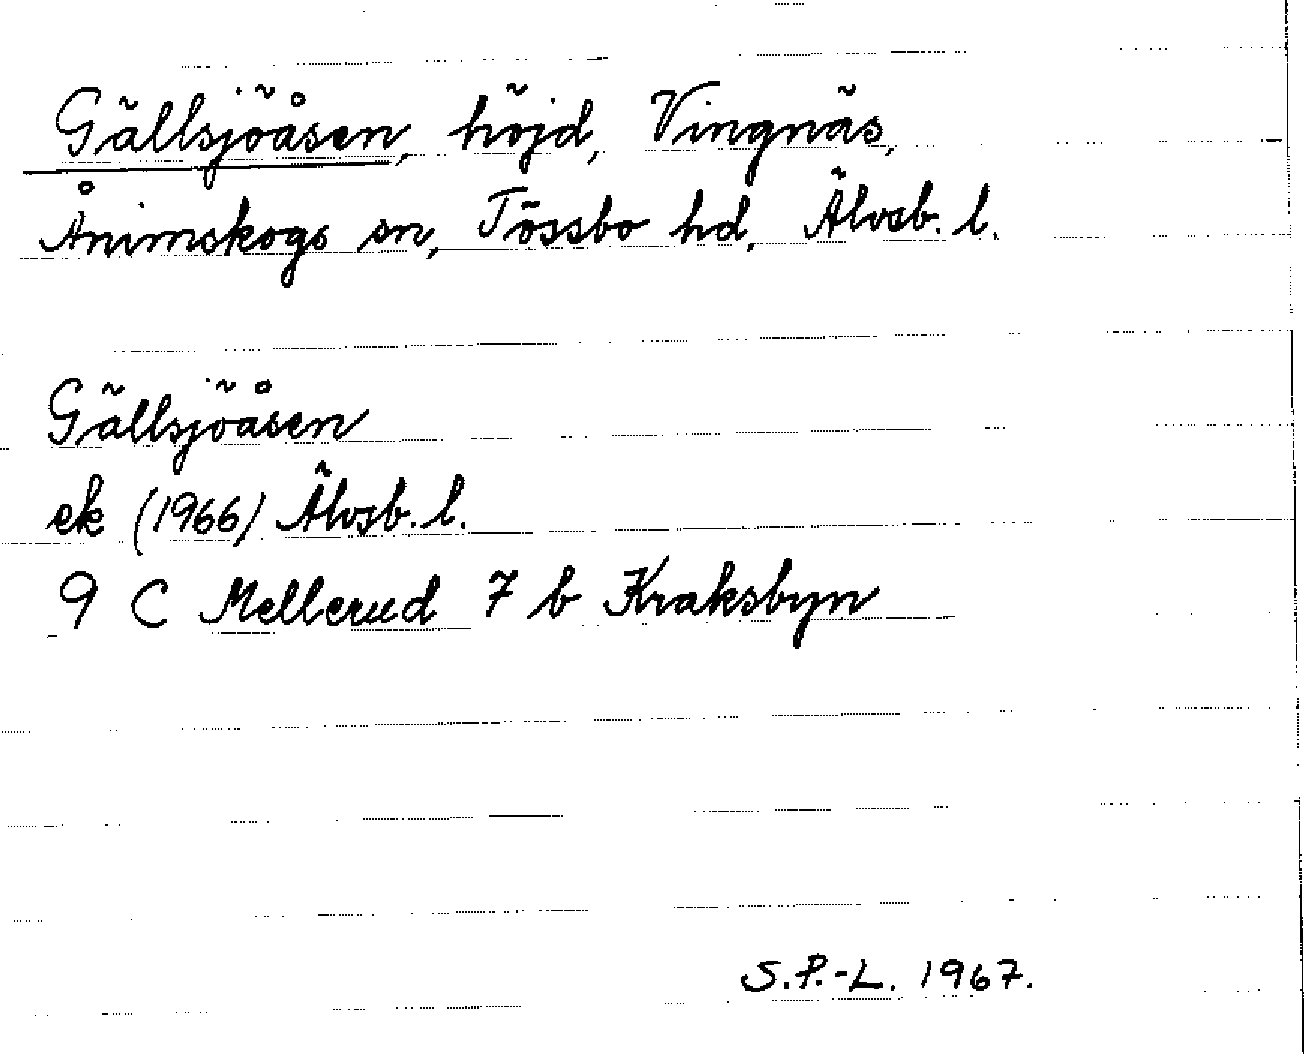 Gällsjöåsen, höjd, Vingnäs,
Ånimskogs sn, Tössbo hd, Älvsb. l.
Gällsjöåsen
ek (1966) Älvsb. l.
9 C Mellerud 7 b Kraksbyn
S.P.-L. 1967.